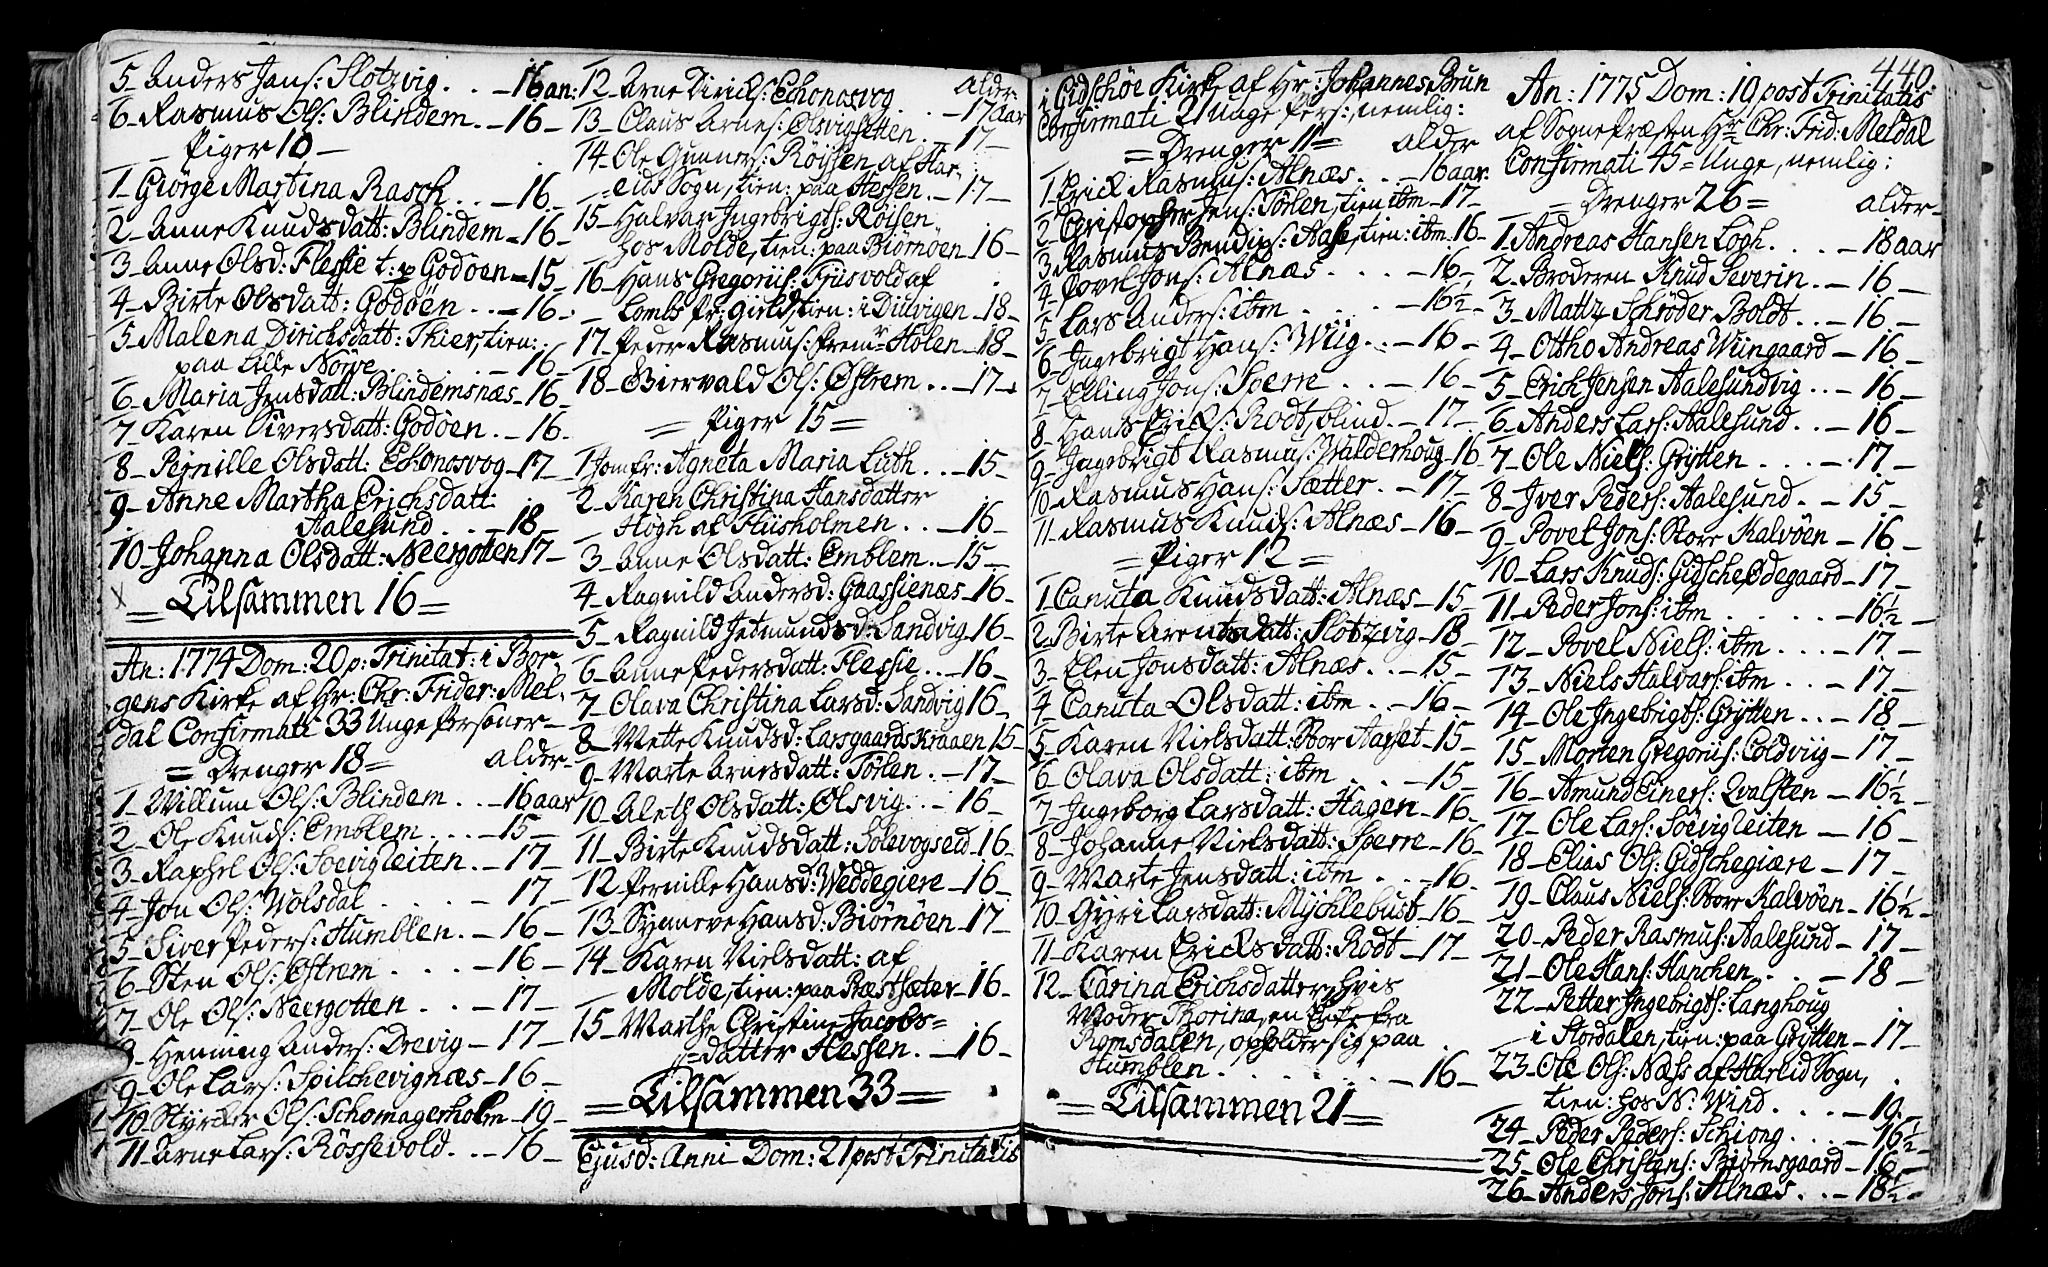 5 - Anders Jans: Slotzvig . . . - 16 an:
6 - Rasmus Ols: Blindem . . - 16 -
- Piger 10 -
1 - Giörge Martina Rasch . . - 16 -
2 - Anne Knudsdatt: Blindem - 16 -
3 - Anne Olsd: Flessie t: p Godöen - 15 -
4 - Birte Olsdatt: Godöen . . - 16 -
5 - Malena Diricksdatt: Thier, tien:
paa Lille Nörve . . . - 16 -
6 - Maria Jensdatt: Blindemsnæs - 16 -
7 - Karen Siversdatt: Godöen . - 16 -
8 - Pernille Olsdatt: Echonosvog - 17 -
9 - Anne Martha Erichsdatt:
Aalesund . . . - 18 -
10 - Johanna Olsdatt: Neergotten 17 -
= Tilsammen 16 =
An: 1774 Dom: 20 p: Trinitat: i Bor-
gens Kirke af Hr: Chr: Frider: Mel-
dal Confirmati 33 Unge Personer -
= Drenger 18 = alder -
1 - Willum Ols: Blindem . . - 16 aar
2 - Ole Knuds: Emblem . . . - 15 -
3 - Raphel Ols: Soevigleiten . - 17 -
4 - Jon Ols: Wolsdal . . . . - 17 -
5 - Siver Peders: Humblen . - 16 -
6 - Sten Ols: Östrem . . . - 16 -
7 - Ole Ols: Neergotten . . - 17 -
8 - Henning Anders: Drevig - 17 -
9 - Ole Lars: Spilchevignæs - 16 -
10 - Styrcker Ols: Schomagerholm - 19 -
11 - Arne Lars: Rössevold . . - 16 -
12 - Arne Dirichs: Echonosvog alder
. . - 17 aar
13 - Claus Arnes: Olsvigsetten . - 17 -
14 - Ole Gunners: Röissen af Har-
eids Sogn, tien: paa Hessen . - 17 -
15 - Halvar Ingebrigts: Röisen
hos Molde, tien: paa Biörnöen 16 -
16 - Hans Gregoriis: Tjusvold af
Lombs Pr: Gield, tien: i Diuvigen - 18 -
17 - Peder Rasmus: Frem Holen - 18 -
18 - Biervald Ols: Östrem . . - 17 -
= Piger 15 =
1 Jomfr: Agneta Maria Luth . . - 15 -
2 - Karen Christina Hansdatter
Högh af Fliisholmen . . - 16 -
3 - Anne Olsdatt: Emblem . - 15 -
4 - Ragnild Andersd: Gaassienæs - 16 -
5 - Ragnild Jetmundsd: Sandvig 16 -
6 - Anne Pedersdatt: Flessie . . - 16 -
7 - Olava Christina Larsd: Sandvig 16 -
8 - Mette Knudsd: Larsgaards kraaen 15 -
9 - Marte Arnesdatt: Törlen . - 17 -
10 - Aleth Olsdatt: Olsvig . . - 16 -
11 - Birte Knudsdatt: Solevogseid - 16 -
12 - Pernille Hansd: Weddegiere - 16 -
13 - Synneve Hansd: Biörnöen - 17 -
14 - Karen Nielsdatt: af
Molde, tien: paa Præstsæter - 16 -
15 - Marthe Christine Jacobs=
=datter Hessen . - 16 -
= Tilsammen 33 =
Ejusd: Anni Dom: 21 post Trinitatis
i Gidschöe Kirke af Hr: Johannes Brun
Confirmati 21 Unge Pers:, nemlig:
= Drenger 11 = alder
1 - Erick Rasmus: Alnæs . . . - 16 aar.
2 - Christopher Jens: Törlen, tien ibm - 17 -
3 - Rasmus Bendix: Aase, tien: ibm. 16 -
4 - Povel Jons: Alnæs . . . . - 16 -
5 - Lars Anders: ibm . . . . - 16½ -
6 - Ingebrigt Hans: Wiig . . - 16 -
7 - Elling Jons: Sperre . . . - 16 -
8 - Hans Erichs: Rodt, blind . - 17 -
9 - Ingebrigt Rasmus: Walderhoug 16
10 - Rasmus Hans: Sætter . - 17 -
11 - Rasmus Knuds: Alnæs - 16 -
= Piger 12 =
1 - Canuta Knudsdatt: Alnæs - 15 -
2 - Birte Arentsdatt: Slotzvig - 18 -
3 - Elen Jonsdatt: Alnæs . . - 15 -
4 - Canuta Olsdatt: ibm . - 16 -
5 - Karen Nielsdatt: Stor Aarset - 15 -
6 - Olava Olsdatt: ibm . . . - 15 -
7 - Ingeborg Larsdatt: Hagen - 16 -
8 - Johanne Nielsdatt: Sperre - 16 -
9 - Marte Jensdatt: ibm . . . - 16 -
10 - Gyri Larsdatt: Mychlebust - 16 -
11 - Karen Ericksdatt: Rodt - 17 -
12 - Carina Erichsdatter, hvis
Moder Thorina, en Enke fra
Romsdalen, opholder sig paa
Humblen . . . . . . - 16 -
= Tilsammen 21 =
440.
An: 1775 Dom: 10 post Trinitatis
af Sognepræsten Hr: Chr: Frid: Meldal
Confirmati 45 = Unge, nemlig:
= Drenger 26 = alder -
1 - Andreas Hansen Logh . . . - 18 aar
2 - Broderen Knud Severin . - 16 -
3 - Mattz Schröder Boldt . . - 16 -
4 - Ottho Andreas Wiingaard - 16 -
5 - Erich Jensen Aalesundvig . . - 16 -
6 - Anders Lars: Aalesund . . - 16 -
7 - Ole Niels: Grytten . . . - 17 -
8 - Iver Peders: Aalesund . - 15 -
9 - Povel Jons: Store Kalvöen - 16 -
10 - Lars Knuds: Gidsche Ödegaard - 17 -
11 - Peder Jons: ibm . . . . . - 16½ -
12 - Povel Niels: ibm . . . . - 17 -
13 - Niels Halvars: ibm . . . - 17 -
14 - Ole Ingebrigts: Grytten . . - 18 -
15 - Morten Gregoriis: Coldviig - 17 -
16 - Amund Einers: Qvalsten - 16½ -
17 - Ole Lars: Soevigleiten - 16 -
18 - Elias Ols: Gidschegiære - 17 -
19 - Claus Niels: Store Kalvöen - 16½ -
20 - Peder Rasmus: Aalesund - 17 -
21 - Ole Hans: Hanchen . . . - 18 -
22 - Petter Ingebrigts: Langhoug
i Stordalen, tien: paa Grytten - 17 -
23 - Ole Ols: Næss af Harlid Sogn,
tien: hos N: Wind . . . . - 19 -
24 - Peder Peders: Schiong . . . . - 16½ -
25 - Ole Christens: Biörnsgaard - 16 -
26 - Anders Jons: Alnæs . . - 18½ -